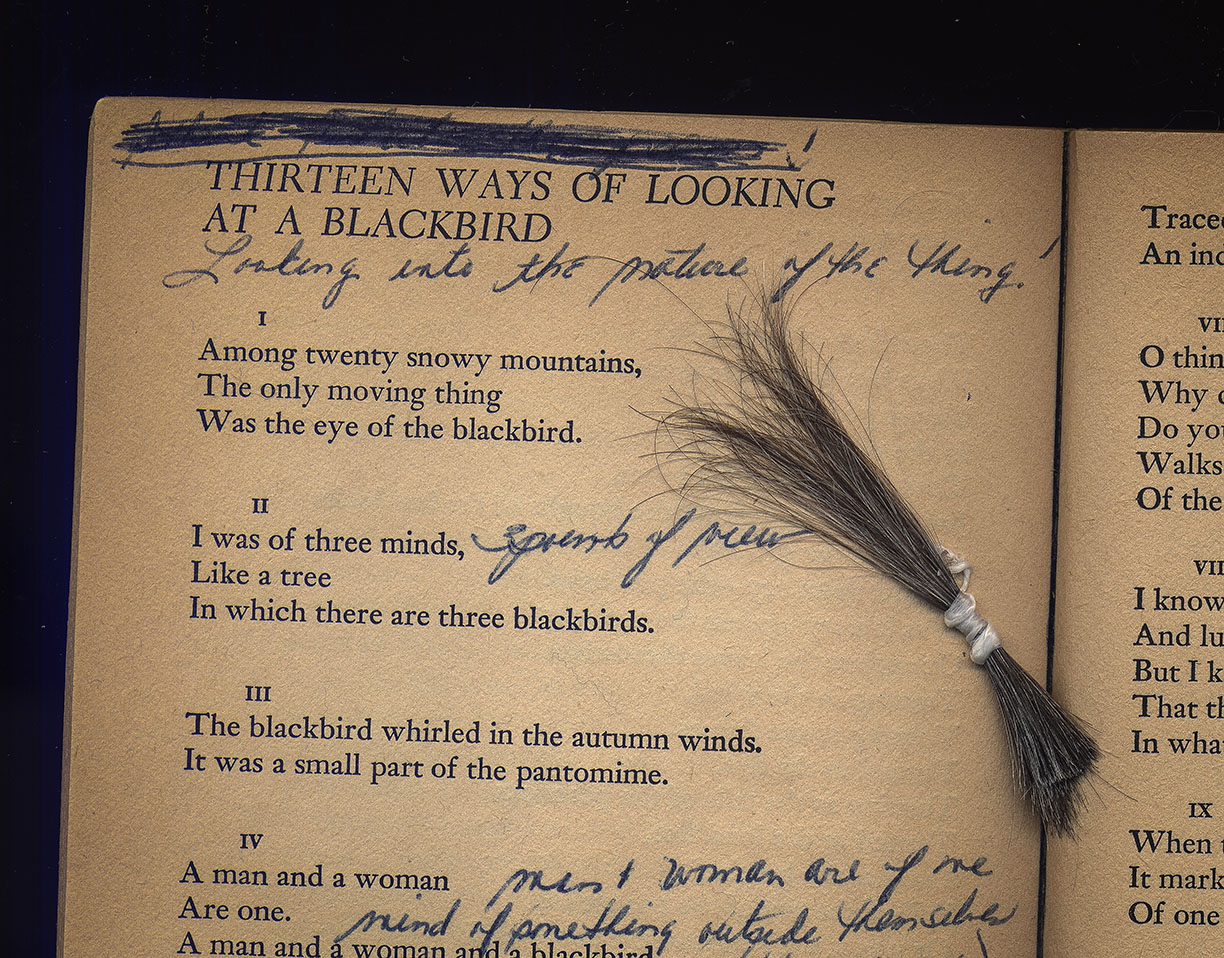 THIRTEEN WAYS OF LOOKING
AT A BLACKBIRD
Looking into the nature of the thing!
I
Among twenty snowy mountains,
The only moving thing
Was the eye of the blackbird.
II
I was of three minds, 3 points of view
Like a tree
In which there are three blackbirds.
III
The blackbird whirled in the autumn winds.
It was a small part of the pantomime.
IV
A man and a woman man & woman are of one
Are one. mind of something outside themselves
A man and a woman and a blackbird
Traced
An ind
VII
O thin
Why d
Do you
Walks
Of the
VIII
I know
And lu
But I k
That th
In what
IX
When t
It mark
Of one